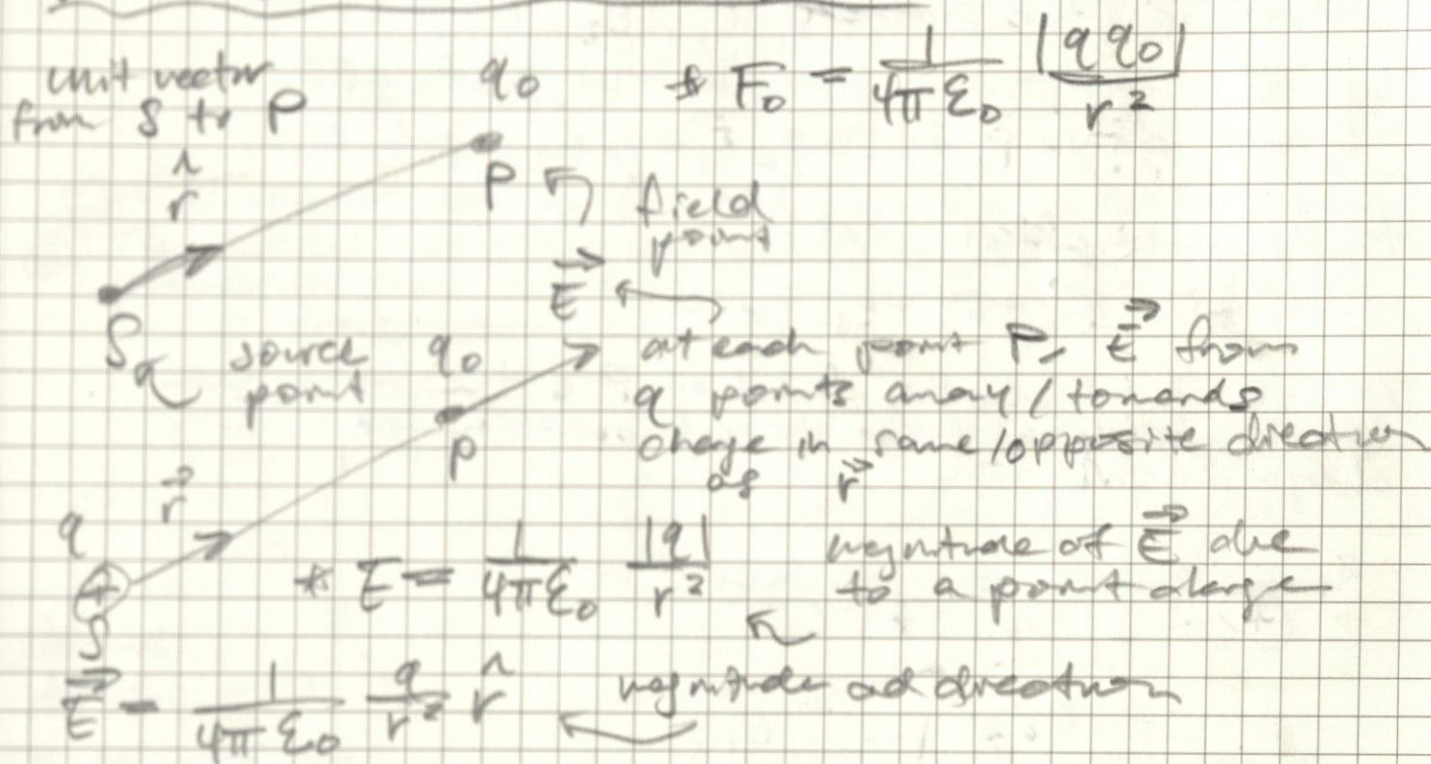 unit vector
from S to P
r̂
q₀
* F₀ = 1/(4πε₀) |q q₀|/r²
P
field
point
S
q
source
point
E⃗
at each point P, E⃗ from
q points away/towards
charge in same/opposite direction
as r⃗
q₀
P
r⃗
q
+
S
* E = 1/(4πε₀) |q|/r²
magnitude of E⃗ due
to a point charge
E⃗ = 1/(4πε₀) q/r² r̂
magnitude ad direction